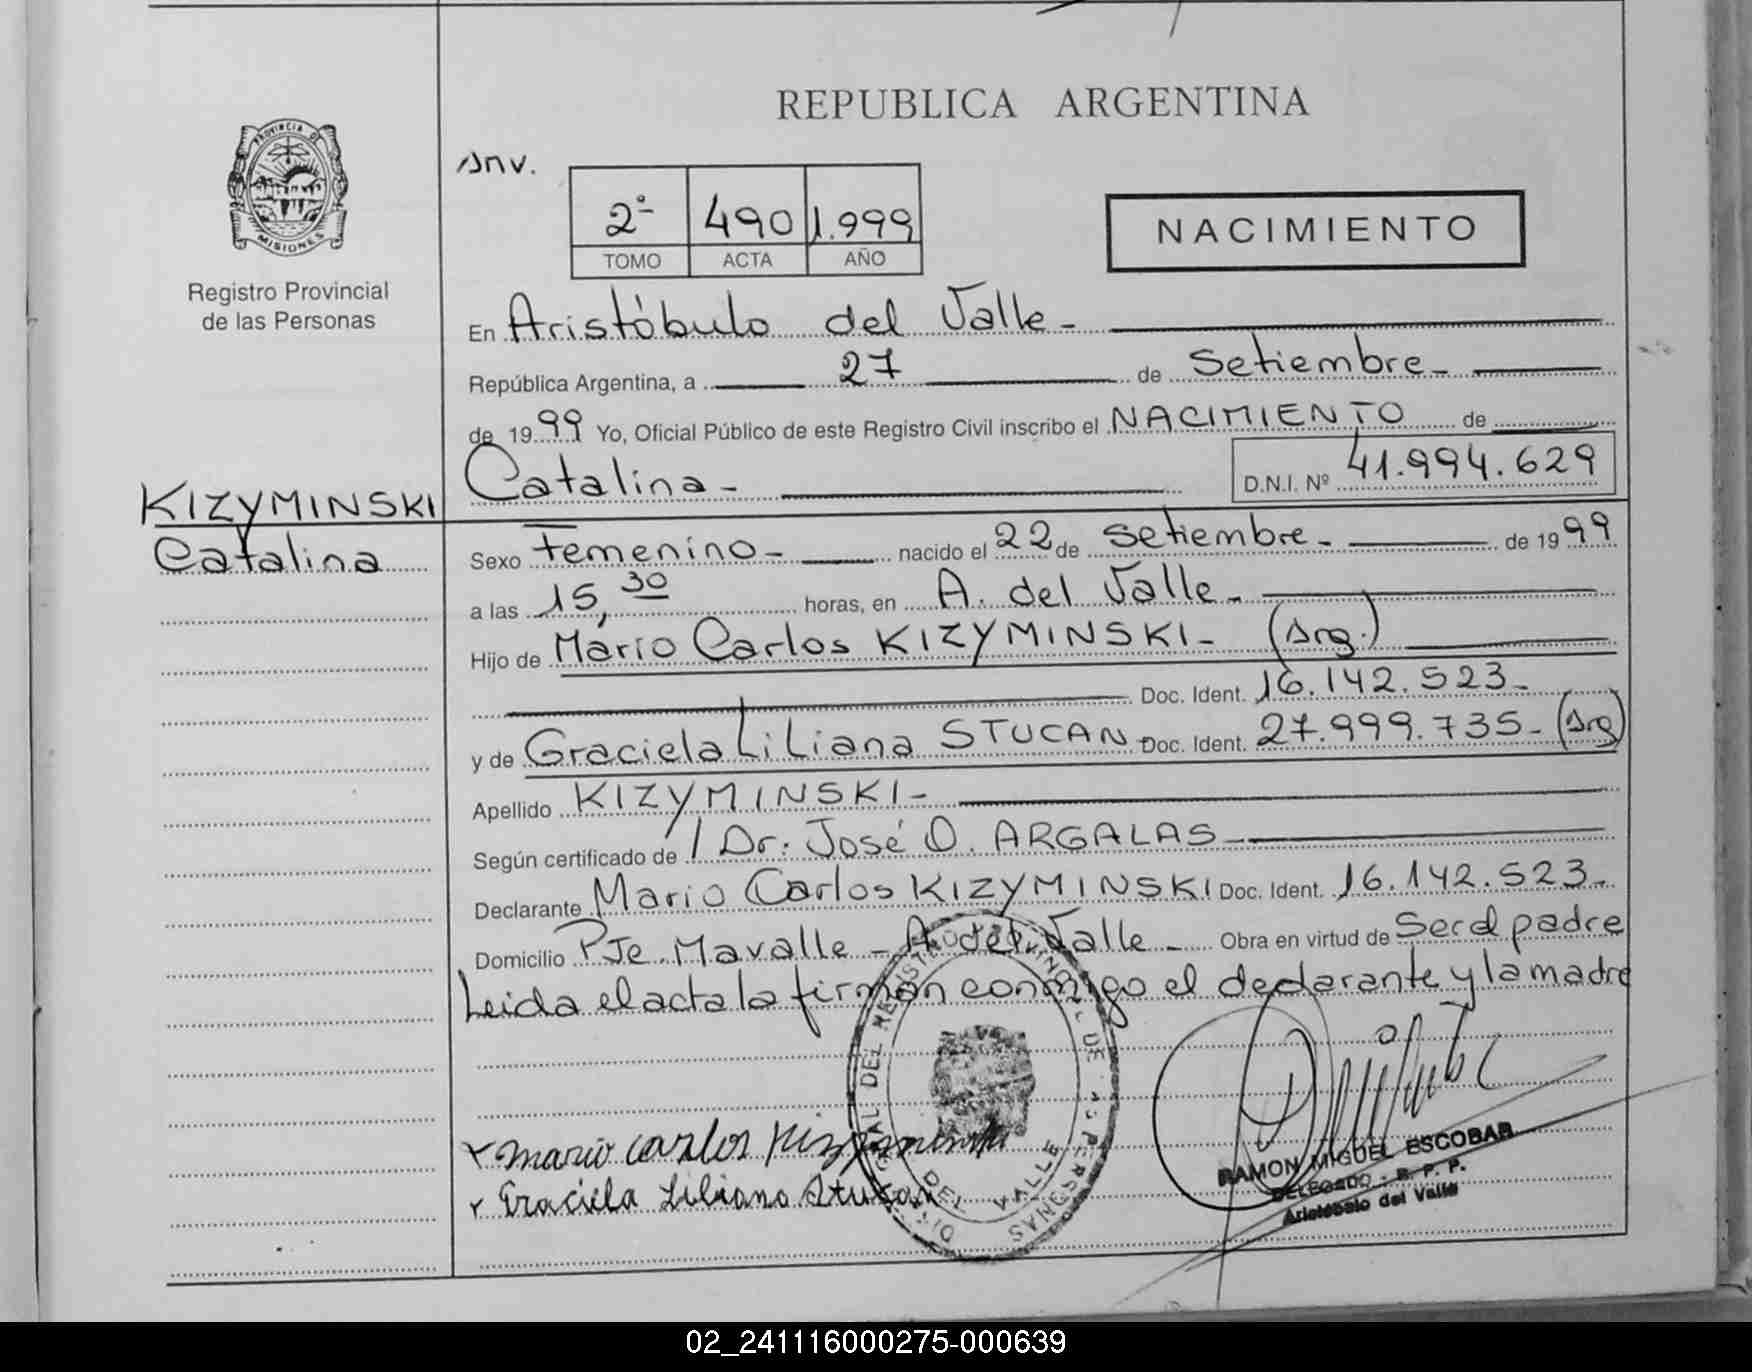 REPUBLICA ARGENTINA
PROVINCIA D
MISIONES
Registro Provincial
de las Personas
Inv.
2º 490 1.999
TOMO ACTA AÑO
NACIMIENTO
En Aristóbulo del Valle -
República Argentina, a 27 de Setiembre -
de 1999 Yo, Oficial Público de este Registro Civil inscribo el NACIMIENTO de
Catalina - D.N.I. Nº 41.994.629
KIZYMINSKI
Catalina
Sexo Femenino - nacido el 22 de Setiembre - de 1999
a las 15,30 horas, en A. del Valle -
Hijo de Mario Carlos KIZYMINSKI - (Arg.)
Doc. Ident. 16.142.523 -
y de Graciela Liliana STUCAN - Doc. Ident. 27.999.735 - (Arg)
Apellido KIZYMINSKI -
Según certificado de / Dr. José O. ARGALAS -
Declarante Mario Carlos KIZYMINSKI Doc. Ident. 16.142.523 -
Domicilio Pje. Mavalle - A. del Valle - Obra en virtud de Ser el padre
Leida el acta la firman conmigo el declarante y la madre
Mario Carlos Kizyminski
Graciela Liliana Stucan
DEL VALLE
RAMON MIGUEL ESCOBAR
DELEGADO - R. P. P.
Aristóbulo del Valle
02_241116000275-000639